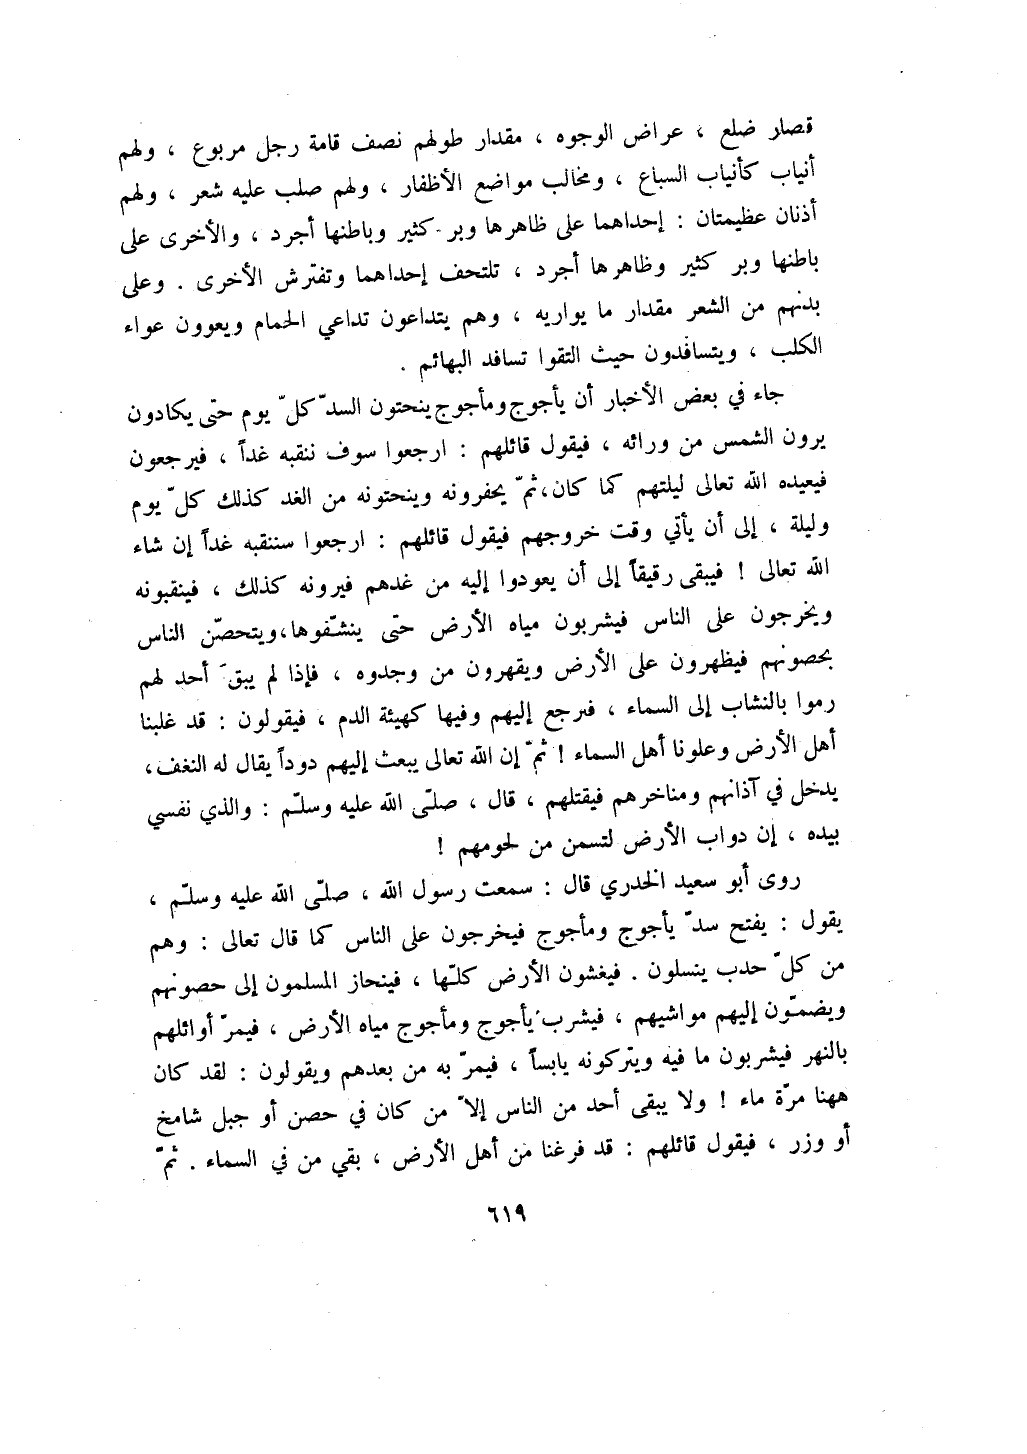 قصار ضلع ، عراض الوجوه ، مقدار طولهم نصف قامة رجل مربوع ، ولهم
أنياب كأنياب السباع ، ومخالب مواضع الأظفار ، ولهم صلب عليه شعر ، ولهم
أذنان عظيمتان : إحداهما على ظاهرها وبر كثير وباطنها أجرد ، والأخرى على
باطنها وبر كثير وظاهرها أجرد ، تلتحف إحداهما وتفترش الأخرى . وعلى
بدنهم من الشعر مقدار ما يواريه ، وهم يتداعون تداعي الحمام ويعوون عواء
الكلب ، ويتسافدون حيث التقوا تسافد البهائم .
جاء في بعض الأخبار أن يأجوج ومأجوج ينحتون السدّ كلّ يوم حتى يكادون
يرون الشمس من ورائه ، فيقول قائلهم : ارجعوا سوف ننقبه غداً ، فيرجعون
فيعيده الله تعالى ليلتهم كما كان، ثمّ يحفرونه وينحتونه من الغد كذلك كلّ يوم
وليلة ، إلى أن يأتي وقت خروجهم فيقول قائلهم : ارجعوا سننقبه غداً إن شاء
الله تعالى ! فيبقى رقيقاً إلى أن يعودوا إليه من غدهم فيرونه كذلك ، فينقبونه
ويخرجون على الناس فيشربون مياه الأرض حتى ينشّفوها، ويتحصّن الناس
بحصونهم فيظهرون على الأرض ويقهرون من وجدوه ، فإذا لم يبقَ أحد لهم
رموا بالنشاب إلى السماء ، فيرجع إليهم وفيها كهيئة الدم ، فيقولون : قد غلبنا
أهل الأرض وعلونا أهل السماء ! ثمّ إن الله تعالى يبعث إليهم دوداً يقال له النغف،
يدخل في آذانهم ومناخرهم فيقتلهم ، قال ، صلّى الله عليه وسلّم : والذي نفسي
بيده ، إن دواب الأرض لتسمن من لحومهم !
روى أبو سعيد الخدري قال : سمعت رسول الله ، صلّى الله عليه وسلّم ،
يقول : يفتح سدّ يأجوج ومأجوج فيخرجون على الناس كما قال تعالى : وهم
من كلّ حدب ينسلون . فيغشون الأرض كلّها ، فينحاز المسلمون إلى حصونهم
ويضمّون إليهم مواشيهم ، فيشرب يأجوج ومأجوج مياه الأرض ، فيمرّ أوائلهم
بالنهر فيشربون ما فيه ويتركونه يابساً ، فيمرّ به من بعدهم ويقولون : لقد كان
ههنا مرّة ماء ! ولا يبقى أحد من الناس إلاّ من كان في حصن أو جبل شامخ
أو وزر ، فيقول قائلهم : قد فرغنا من أهل الأرض ، بقي من في السماء . ثمّ
٦١٩